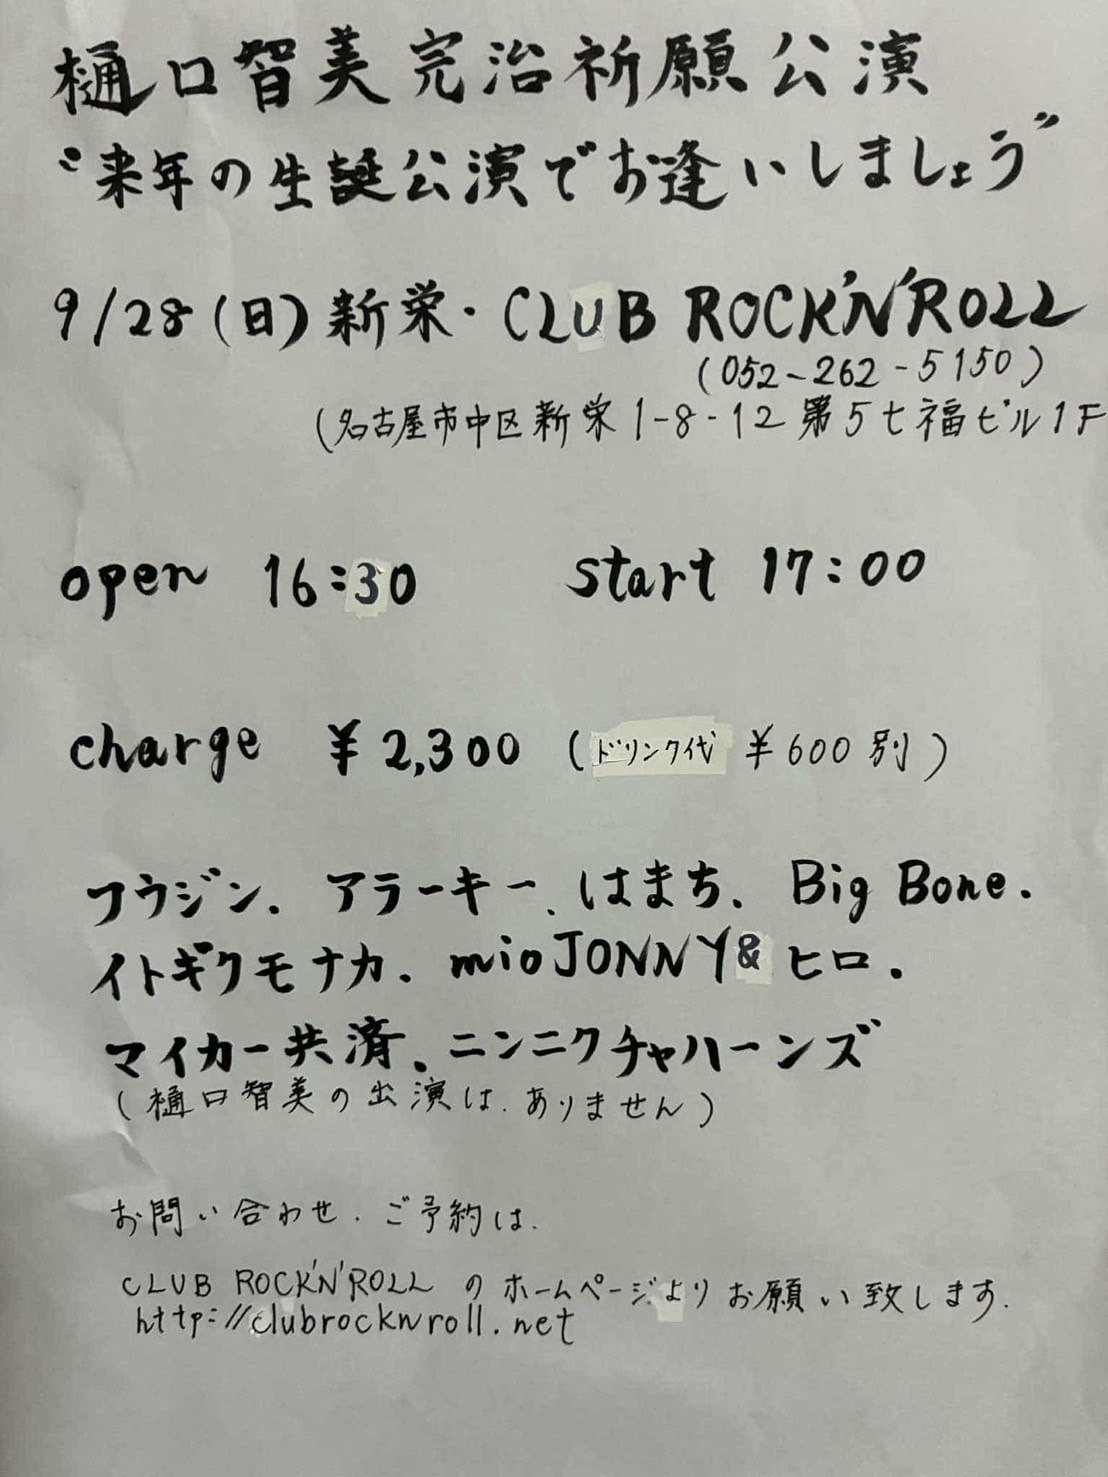 樋口智美完治祈願公演
"来年の生誕公演でお逢いしましょう"
9/28(日)新栄・CLUB ROCK'N'ROLL
(052-262-5150)
(名古屋市中区新栄1-8-12 第5七福ビル1F
open 16:30 start 17:00
charge ¥2,300 (ドリンク代 ¥600別)
フウジン、アラーキー、はまち、Big Bone、
イトギクモナカ、mioJONNY&ヒロ、
マイカー共済、ニンニクチャハーンズ
(樋口智美の出演は、ありません)
お問い合わせ、ご予約は、
CLUB ROCK'N'ROLL のホームページよりお願い致します。
http://clubrocknroll.net